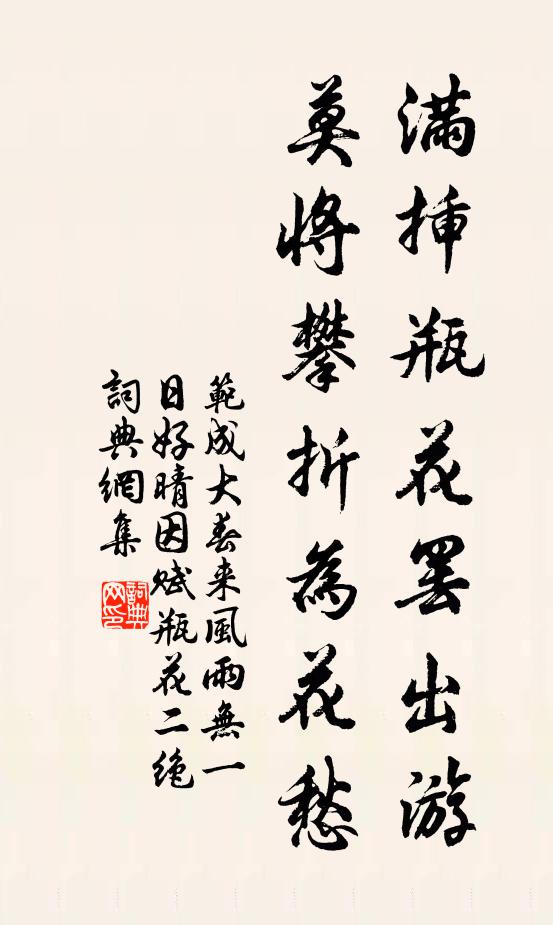 滿揷瓶花罢出游
莫將攀折為花愁
範成大春来風雨無一
日好晴因赋瓶花二绝
詞典網集
詞典网印